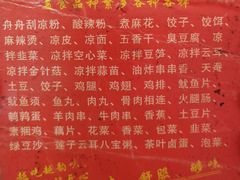 食品种繁多各种各样
舟舟刮凉粉、酸辣粉、煮麻花、饺子、饺饵
麻辣烫、凉皮、凉面、五香干、臭豆腐、凉
拌韭菜、凉拌空心菜、凉拌豆笋、凉拌云耳
凉拌金针菇、凉拌蒜苗、油炸串串香、天蚕
土豆、饺子、鸡腿、鸡翅、鸡排、鱿鱼片、
鱿鱼须、鱼丸、肉丸、骨肉相连、火腿肠、
鹌鹑蛋、羊肉串、牛肉串、香蕉、土豆片、
素捆鸡、藕片、花菜、香菜、包菜、韭菜、
绿豆沙、莲子云耳八宝粥、茶叶卤蛋、泡菜、
越吃越有味